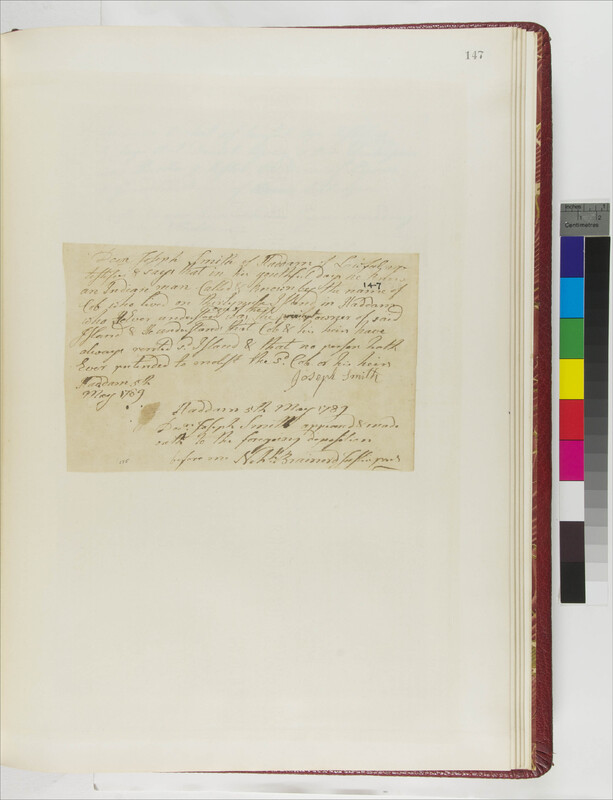 147
Deacn Joseph Smith of Haddam of Lawful age
testifies & says that in his youthful days he knew
an Indian man Called & known by the name of
147
Cob who lived on Thirty mile Island in Haddam
who I Ever understood was the owner of said
Island & I understand that Cob & his heirs have
always rented sd Island & that no person hath
Ever pretended to molest the sd Cob or his heirs
Joseph Smith
Haddam 5th
May 1789
Haddam 5th May 1789
Deacn Joseph Smith appeared & made
oath to the foregoing deposition
before me Nehh Brainerd Justice peace
Inches
Centimetres